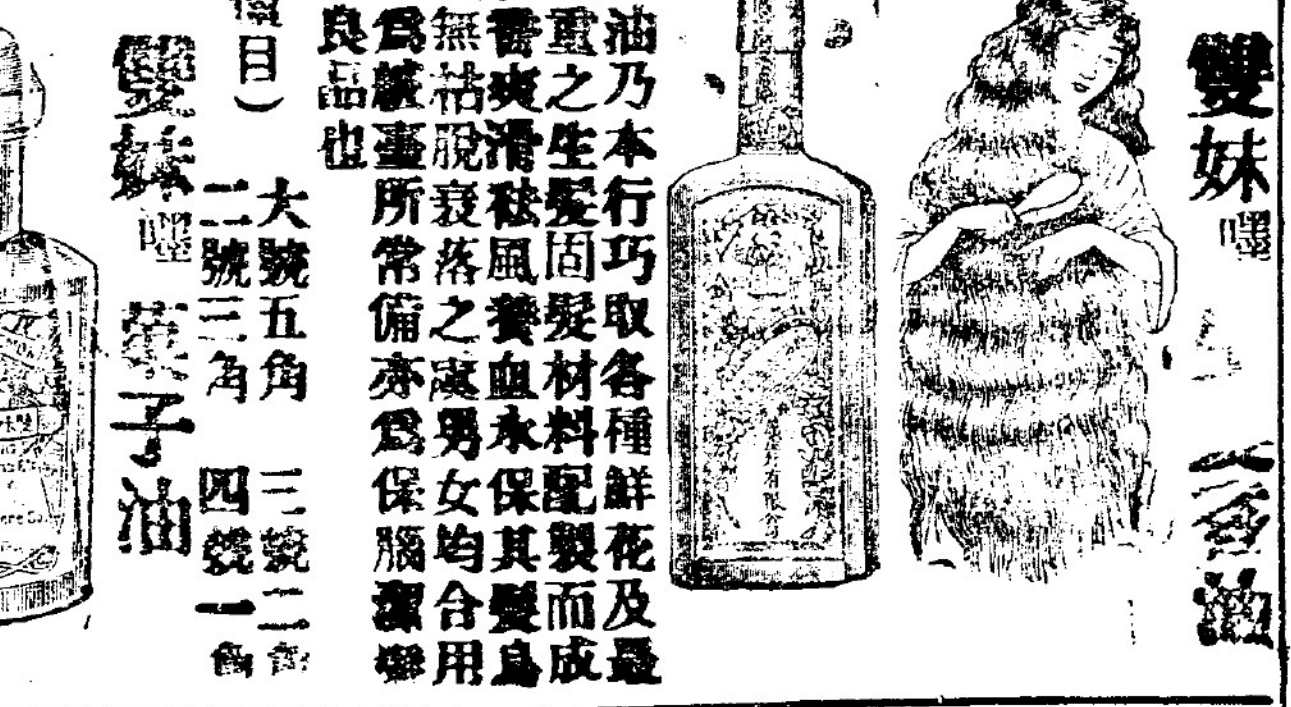 雙妹嘜 油
油乃本行巧取各種鮮花及最
重之生髮固髮材料配製而成
爽滑祛風養血永保其髮烏
無枯脫衰落之虞男女均合用
爲臺所常備亦爲保腦潔
良品也
目）
大號五角 三號二角
二號三角 四號一角
雙妹嘜 菓子油
有限公